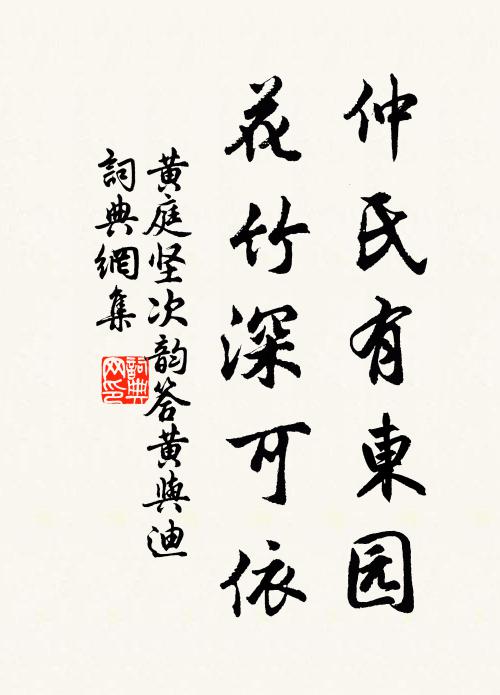 仲氏有東园
花竹深可依
黄庭坚次韵答黄與迪
詞典網集
詞典
网印